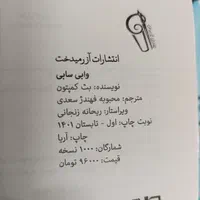 انتشارات آزرمیدخت
وابی سابی
نویسنده: بث کمپتون
مترجم: محبوبه قهندژ سعدی
ویراستار: ریحانه زنجانی
نوبت چاپ: اول - تابستان ۱۴۰۱
چاپ: آریا
شمارگان: ۱۰۰۰ نسخه
قیمت: ۹۶۰۰۰ تومان